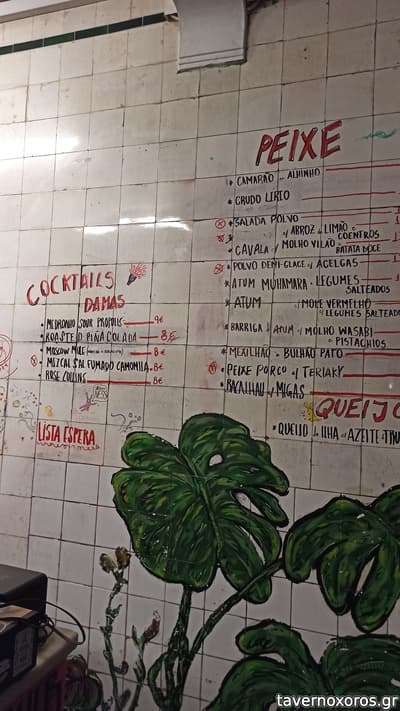 PEIXE
* CAMARÃO AO ALHINHO
* CRUDO LÍRIO
* SALADA POLVO
C/ ARROZ DE LIMÃO E COENTROS
* CAVALA C/ MOLHO VILÃO E BATATA DOCE
* POLVO DEMI-GLACE C/ ACELGAS
* ATUM MUHAMARA C/ LEGUMES SALTEADOS
* ATUM C/ MOLE VERMELHO
E LEGUMES SALTEADO
* BARRIGA D ATUM C/ MOLHO WASABI
E PISTACHIOS
* MEXILHÃO À BULHÃO PATO
* PEIXE PORCO C/ TERIAKY
* BACALHAU C/ MIGAS
QUEIJO
* QUEIJO DA ILHA C/ AZEITE TRU
COCKTAILS
DAMAS
* MEDRONHO SOUR PROPOLIS 9€
* ROASTED PIÑA COLADA 8,5
* MOSCOW MULE 8€
* MEZCAL SAL FUMADO CAMOMILA 8€
COLLINS 8€
LISTA ESPERA
tavernoxoros.gr